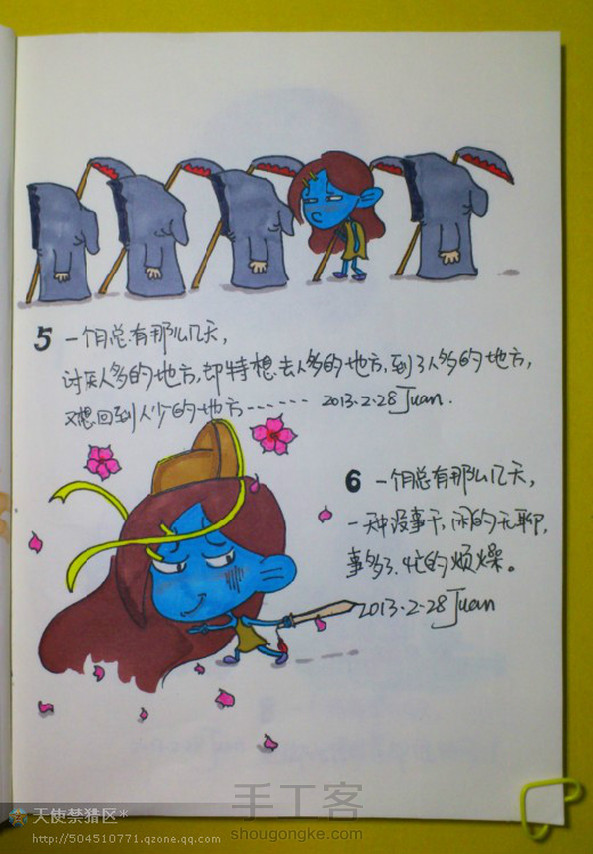 5 一个月总有那么几天，
讨厌人多的地方，却特想去人多的地方，到了人多的地方，
又想回到人少的地方······ 2013.2.28 Juan.
6 一个月总有那么几天，
一天中没事干，闲的无聊，
事多了，忙的烦燥。
2013.2.28 Juan
天使禁猎区*
http://504510771.qzone.qq.com
手工客
shougongke.com